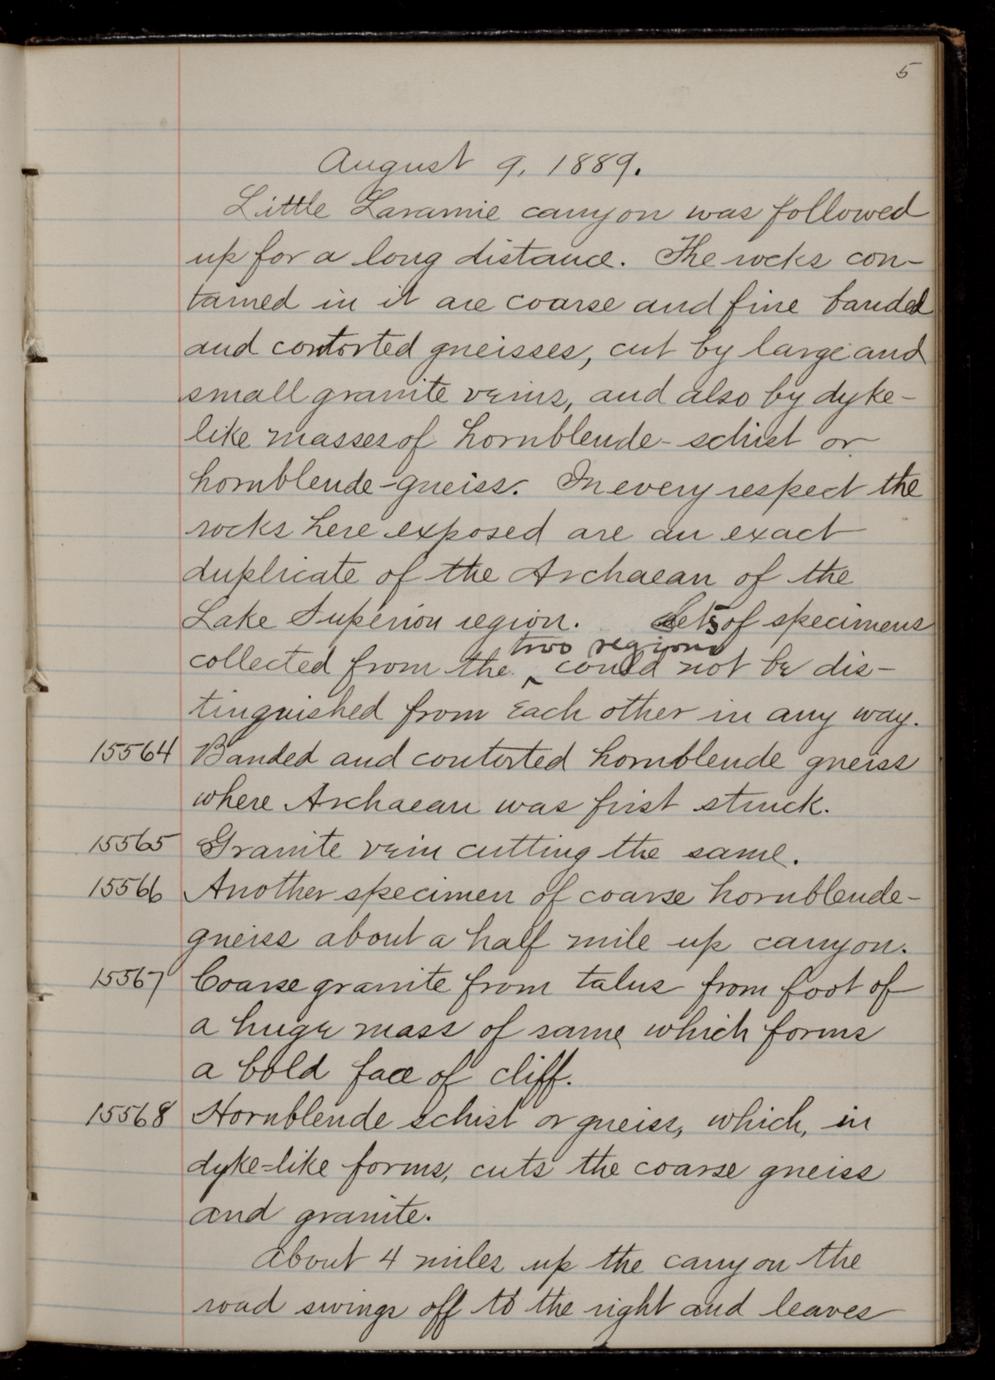 5
August 9, 1889.
Little Laramie canyon was followed
up for a long distance. The rocks con-
tained in it are coarse and fine banded
and contorted gneisses, cut by large and
small granite veins, and also by dyke-
like masses of hornblende-schist or
hornblende-gneiss. In every respect the
rocks here exposed are an exact
duplicate of the Archaean of the
Lake Superior region. Sets of specimens
two regions
collected from the ^ could not be dis-
tinguished from each other in any way.
15564 Banded and contorted hornblende gneiss
where Archaean was first struck.
15565 Granite vein cutting the same.
15566 Another specimen of coarse hornblende-
gneiss about a half mile up canyon.
15567 Coarse granite from talus from foot of
a huge mass of same which forms
a bold face of cliff.
15568 Hornblende schist or gneiss, which, in
dyke-like forms, cuts the coarse gneiss
and granite.
About 4 miles up the canyon the
road swings off to the right and leaves